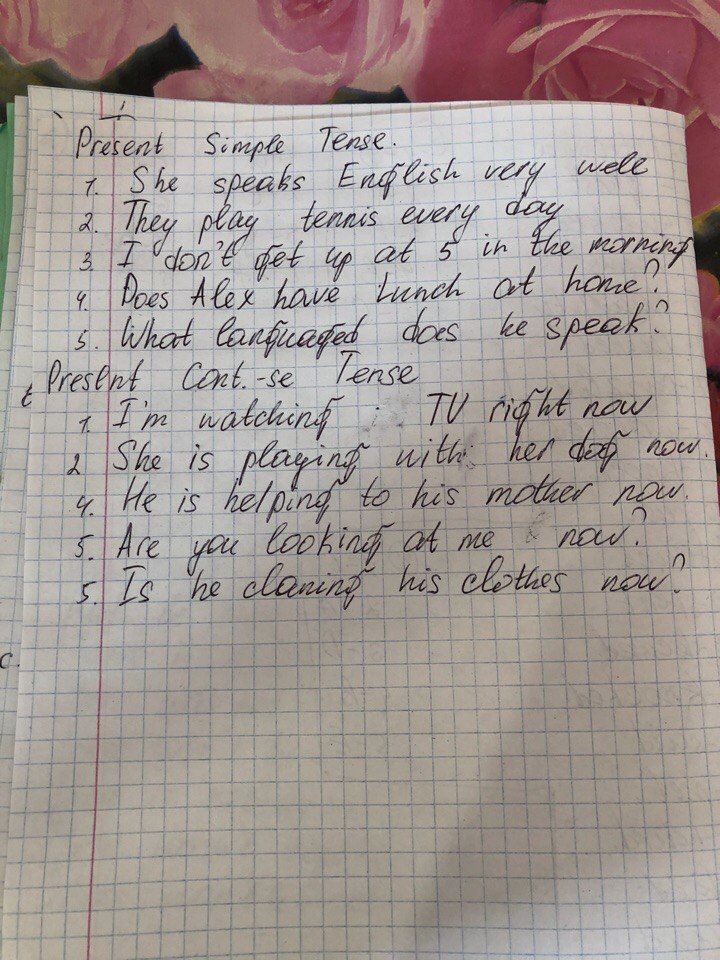 Present Simple Tense.
1. She speaks English very well
2. They play tennis every day
3. I don't get up at 5 in the morning
4. Does Alex have lunch at home?
5. What languaged does he speak?
Present Cont.-se Tense
1. I'm watching TV right now
2 She is playing with her dog now.
4. He is helping to his mother now.
5. Are you looking at me now?
5. Is he claning his clothes now?